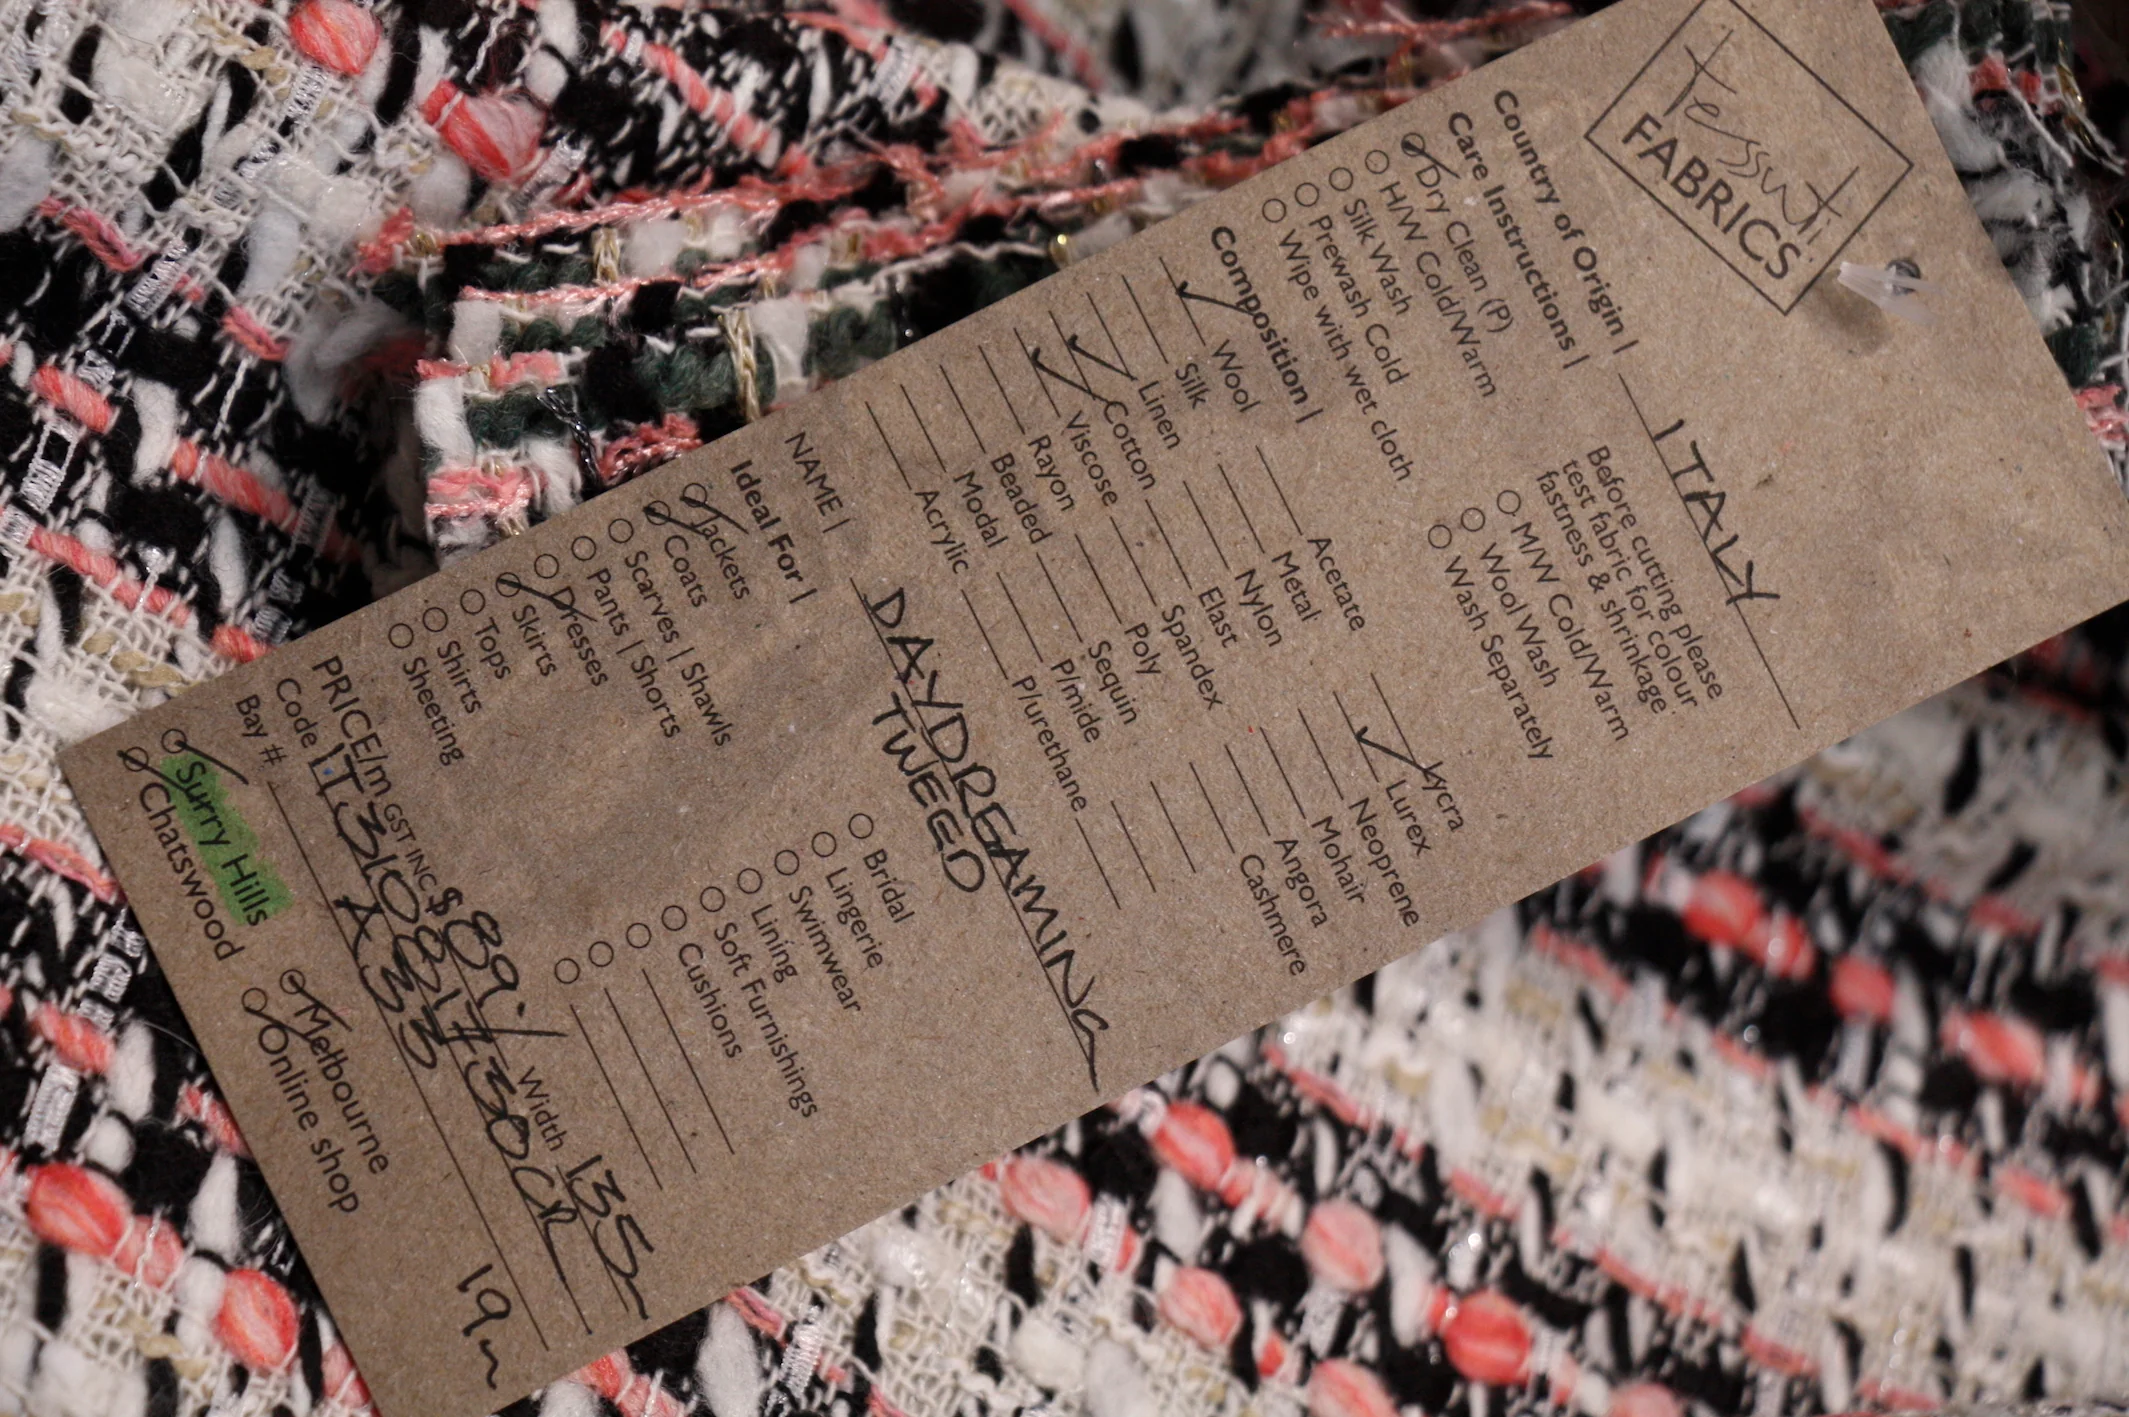 tessuti
FABRICS
Country of Origin | ITALY
Care Instructions |
Dry Clean (P)
H/W Cold/Warm
Silk Wash
Prewash Cold
Wipe with wet cloth
Before cutting please
test fabric for colour
fastness & shrinkage
M/W Cold/Warm
Wool Wash
Wash Separately
Composition |
Wool
Silk
Linen
Cotton
Viscose
Rayon
Beaded
Modal
Acrylic
Acetate
Metal
Nylon
Elast
Spandex
Poly
Sequin
P/mide
P/urethane
Lycra
Lurex
Neoprene
Mohair
Angora
Cashmere
NAME | DAYDREAMING
TWEED
Ideal For |
Jackets
Coats
Scarves | Shawls
Pants | Shorts
Dresses
Skirts
Tops
Shirts
Sheeting
Bridal
Lingerie
Swimwear
Lining
Soft Furnishings
Cushions
PRICE/m GST INC $89./ Width 135
Code IT310817 30CR
Bay # A33
Surry Hills
Chatswood
Melbourne
Online shop
19m